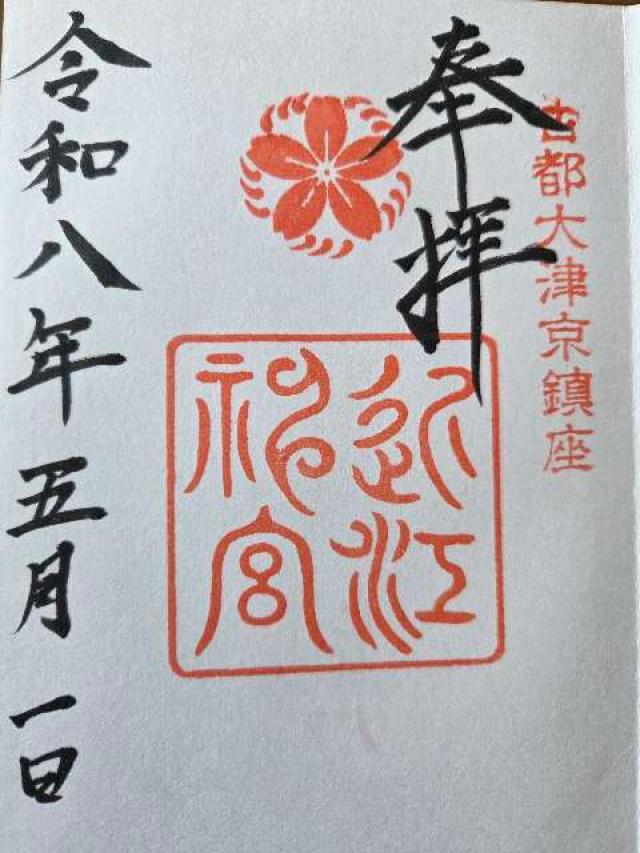 古都大津京鎮座
奉拝
近江
神宮
令和八年五月一日